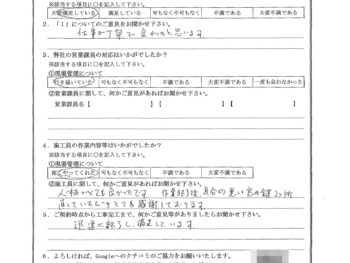 ※該当する項目に○を記入して下さい。
大変満足している 満足している 可もなく不可もなく 不満である 大変不満である
2．「1」についてのご意見をお聞かせ下さい。
仕事が丁寧で良かったと思います。
3．弊社の営業課員の対応はいかがでしたか？
※該当する項目に○を記入して下さい。
①現場管理について
行き届いていた 可もなく不可もなく 不満である 大変不満である 一度も会わなかった
②営業課員に関して、何かご意見があればお聞かせ下さい。
営業課員名【 】【 】【 】
4．施工員の作業内容等はいかがでしたか？
※該当する項目に○を記入して下さい。
①現場管理について
良くやってくれた 可もなく不可もなく 不満である 大変不満である
②施工員に関して、何かご意見があればお聞かせ下さい。
人柄がとても良かったです。作業以外、具合の悪い窓の鍵
直していただきとても感謝しております。
5．ご契約時点から工事完工まで、何かご意見等がありましたらお聞かせ下さい。
迅速に終了し、満足しています。
6．よろしければ、Googleへのクチコミのご協力をお願いいたします。